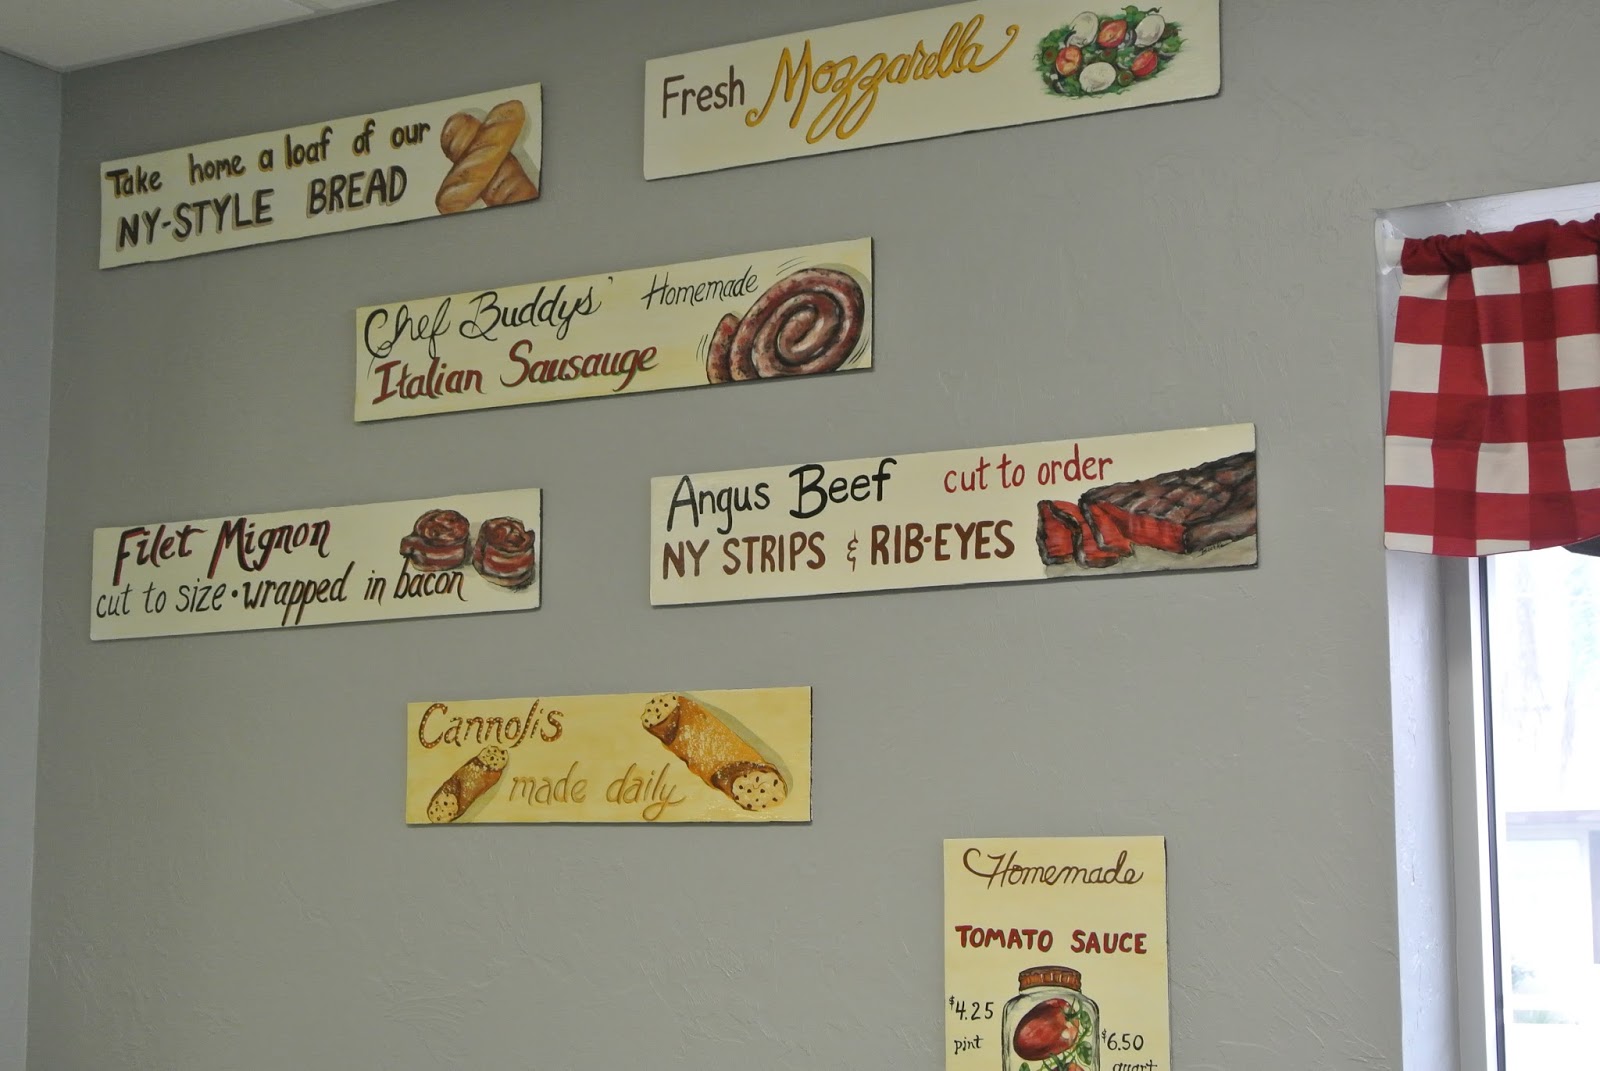 Fresh Mozzarella
Take home a loaf of our
NY-STYLE BREAD
Chef Buddys' Homemade
Italian Sausauge
Angus Beef cut to order
NY STRIPS & RIB-EYES
Filet Mignon
cut to size • wrapped in bacon
Cannolis
made daily
Homemade
TOMATO SAUCE
$4.25
pint
$6.50
quart